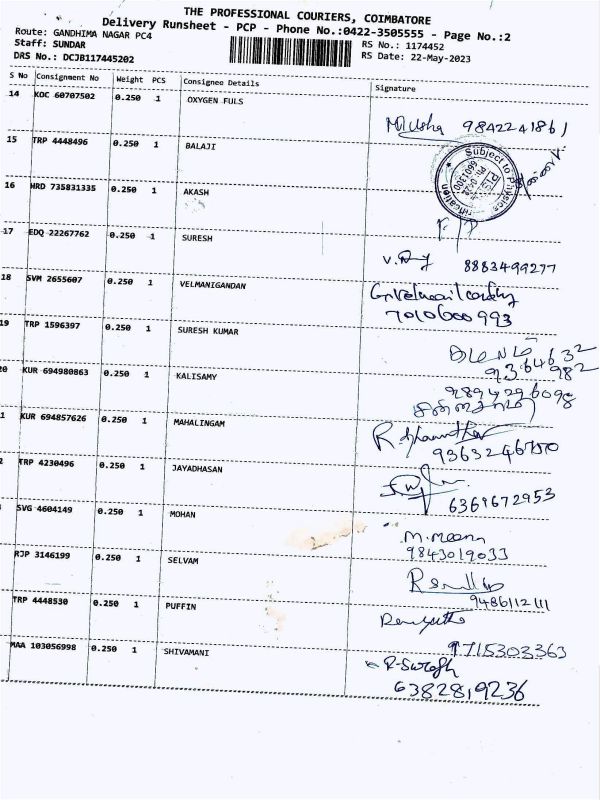 THE PROFESSIONAL COURIERS, COIMBATORE
Delivery Runsheet - PCP - Phone No.:0422-3505555 - Page No.:2
Route: GANDHIMA NAGAR PC4
Staff: SUNDAR
DRS No.: DCJB117445202
RS No.: 1174452
RS Date: 22-May-2023
S No Consignment No Weight PCS Consignee Details Signature
14 KOC 60707502 0.250 1 OXYGEN FULS
9842241861
15 TRP 4448496 0.250 1 BALAJI
Subject to Physics
16 HRD 735831335 0.250 1 AKASH
17 EDQ 22267762 0.250 1 SURESH
8883499277
18 SVM 2655607 0.250 1 VELMANIGANDAN
7010600993
19 TRP 1596397 0.250 1 SURESH KUMAR
20 KUR 694980863 0.250 1 KALISAMY
9894296098
1 KUR 694857626 0.250 1 MAHALINGAM
2 TRP 4230496 0.250 1 JAYADHASAN
6369672953
SVG 4604149 0.250 1 MOHAN
9843019033
RJP 3146199 0.250 1 SELVAM
9486112111
TRP 4448530 0.250 1 PUFFIN
9715303363
MAA 103056998 0.250 1 SHIVAMANI
6382819236